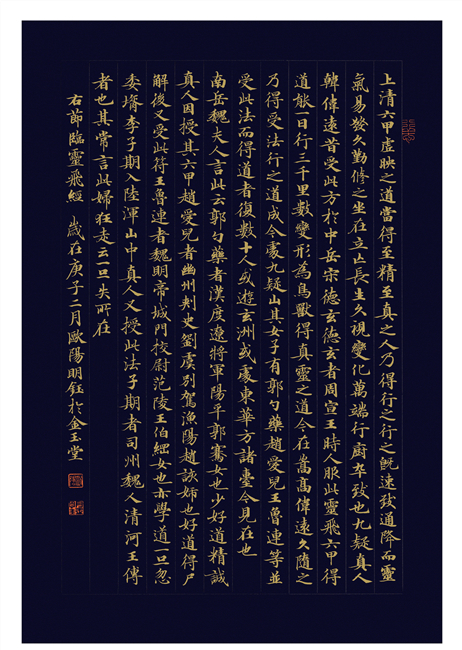 上清六甲虛映之道當得至精至真之人乃得行之行之既速致通降而靈
氣易發久勤修之坐在立亡長生久視變化萬端行廚卒致也九疑真人
韓偉遠昔受此方於中岳宗德玄德玄者周宣王時人服此靈飛六甲得
道能一日行三千里數變形為鳥獸得真靈之道今在嵩高偉遠久隨之
乃得受法行之道成今處九疑山其女子有郭勺藥趙愛兒王魯連等並
受此法而得道者復數十人或遊玄洲或處東華方諸臺今見在也
南岳魏夫人言此云郭勺藥者漢度遼將軍陽平郭騫女也少好道精誠
真人因授其六甲趙愛兒者幽州刺史劉虞別駕漁陽趙該姊也好道得尸
解後又受此符王魯連者魏明帝城門校尉范陵王伯綱女也亦學道一旦忽
委壻李子期入陸渾山中真人又授此法子期者司州魏人清河王傳
者也其常言此婦狂走云一旦失所在
右節臨靈飛經 歲在庚子二月歐陽明鈺於金玉堂